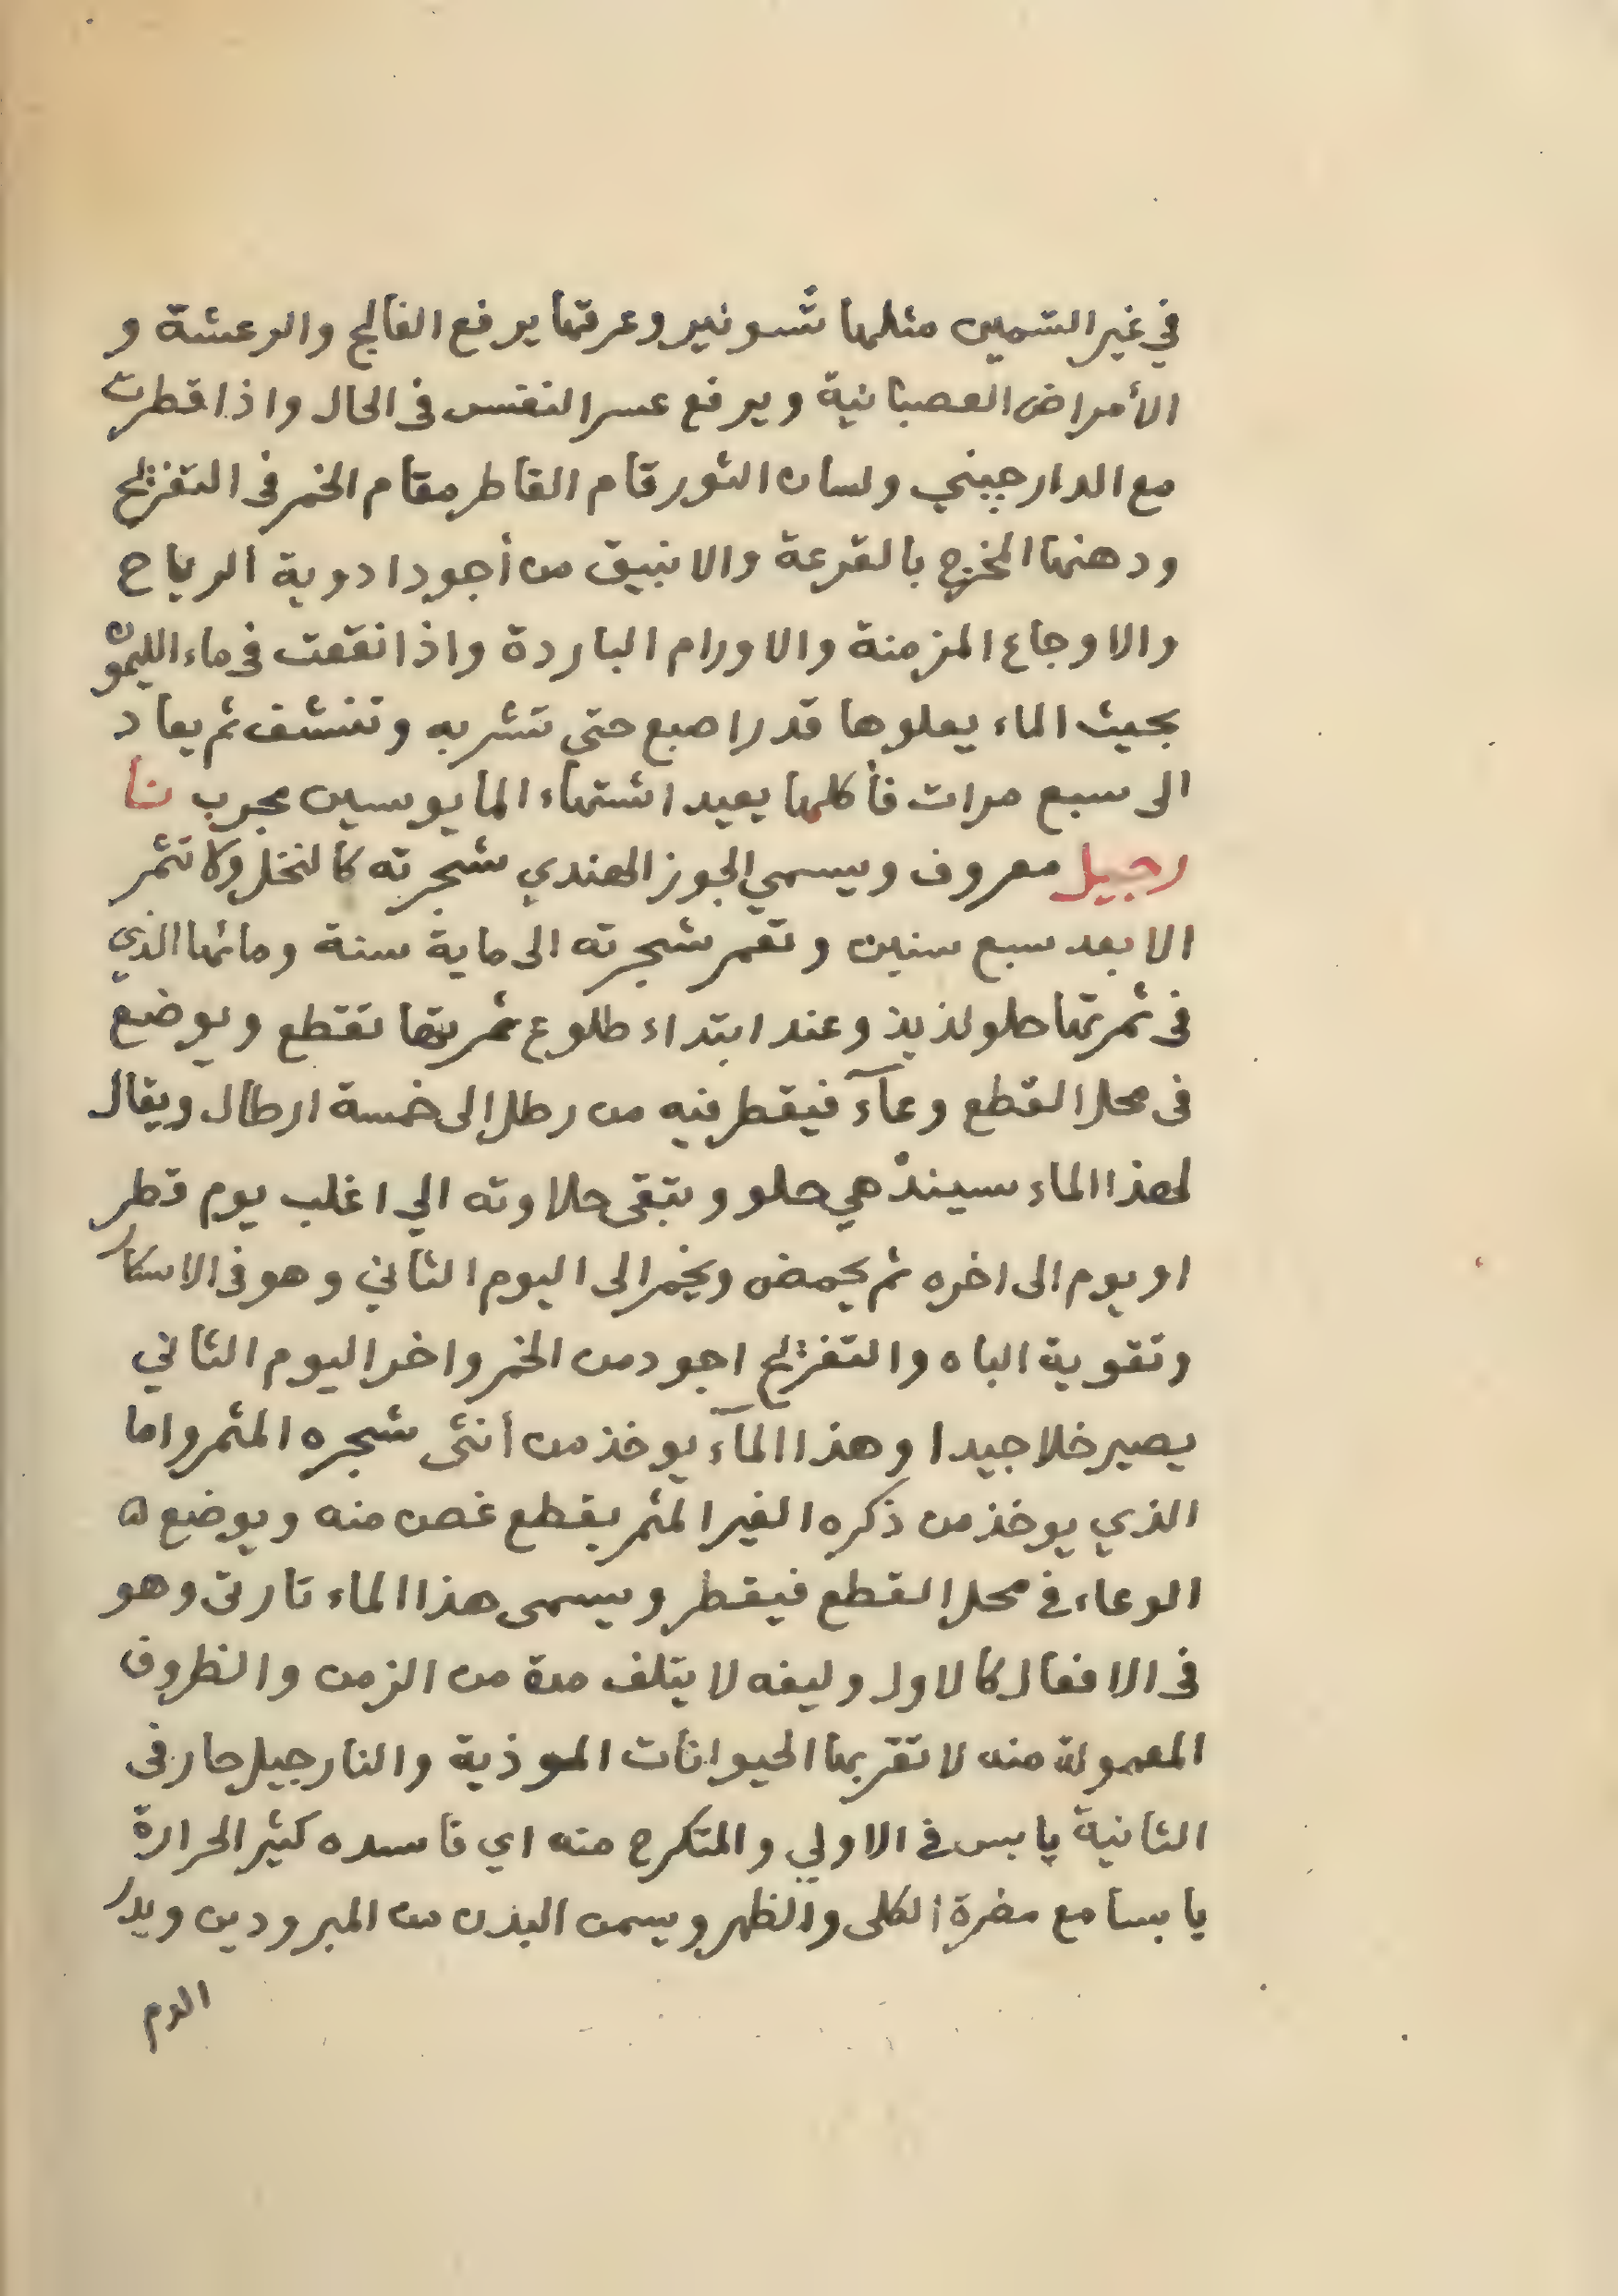 في غير السمين مثلها شونيز وعرقها يرفع الفالج والرعشة و
الأمراض العصبانية ويرفع عسر النفس في الحال واذا قطرت
مع الدارچيني ولسان الثور قام القاطر مقام الخمر في التفريح
ودهنها المخرج بالقرعة والانبيق من أجود ادوية الرياح
والاوجاع المزمنة والاورام الباردة واذا نقعت في ماء الليمون
بحيث الماء يعلوها قدر اصبع حتي تشربه وتنشف ثم يعاد
الى سبع مرات فأكلها يعيد اشتهاء المايوسين مجرب نا
رجيل معروف ويسمي الجوز الهندي شجرته كالنخل ولا تثمر
الا بعد سبع سنين وتعمر شجرته الى ماية سنة ومائها الذي
في ثمرتها حلو لذيذ وعند ابتداء طلوع ثمرتها تقطع ويوضع
في محل القطع وعآء فيقطر فيه من رطل إلى خمسة ارطال ويقال
لهذا الماء سيندهي حلو وتبقى حلاوته الي اغلب يوم قطر
او يوم الى اخره ثم يحمض ويخمر الى اليوم الثاني وهو في الاسكار
وتقوية الباه والتفريح اجود من الخمر واخر اليوم الثاني
يصير خلا جيدا وهذا المآء يوخذ من أنثى شجره المثمر واما
الذي يوخذ من ذكره الغير المثمر يقطع غصن منه ويوضع
الوعاء في محل القطع فيقطر ويسمى هذا الماء تارى وهو
في الافعال كالاول وليفه لا يتلف مدة من الزمن والظروف
المعمولة منه لا تقربها الحيوانات الموذية والنارجيل حار في
الثانية يابس في الاولي والمتكرج منه اي فاسده كثير الحرارة
يابسا مع مضرة الكلى والظهر ويسمن البدن من المبرودين ويدر
الدم